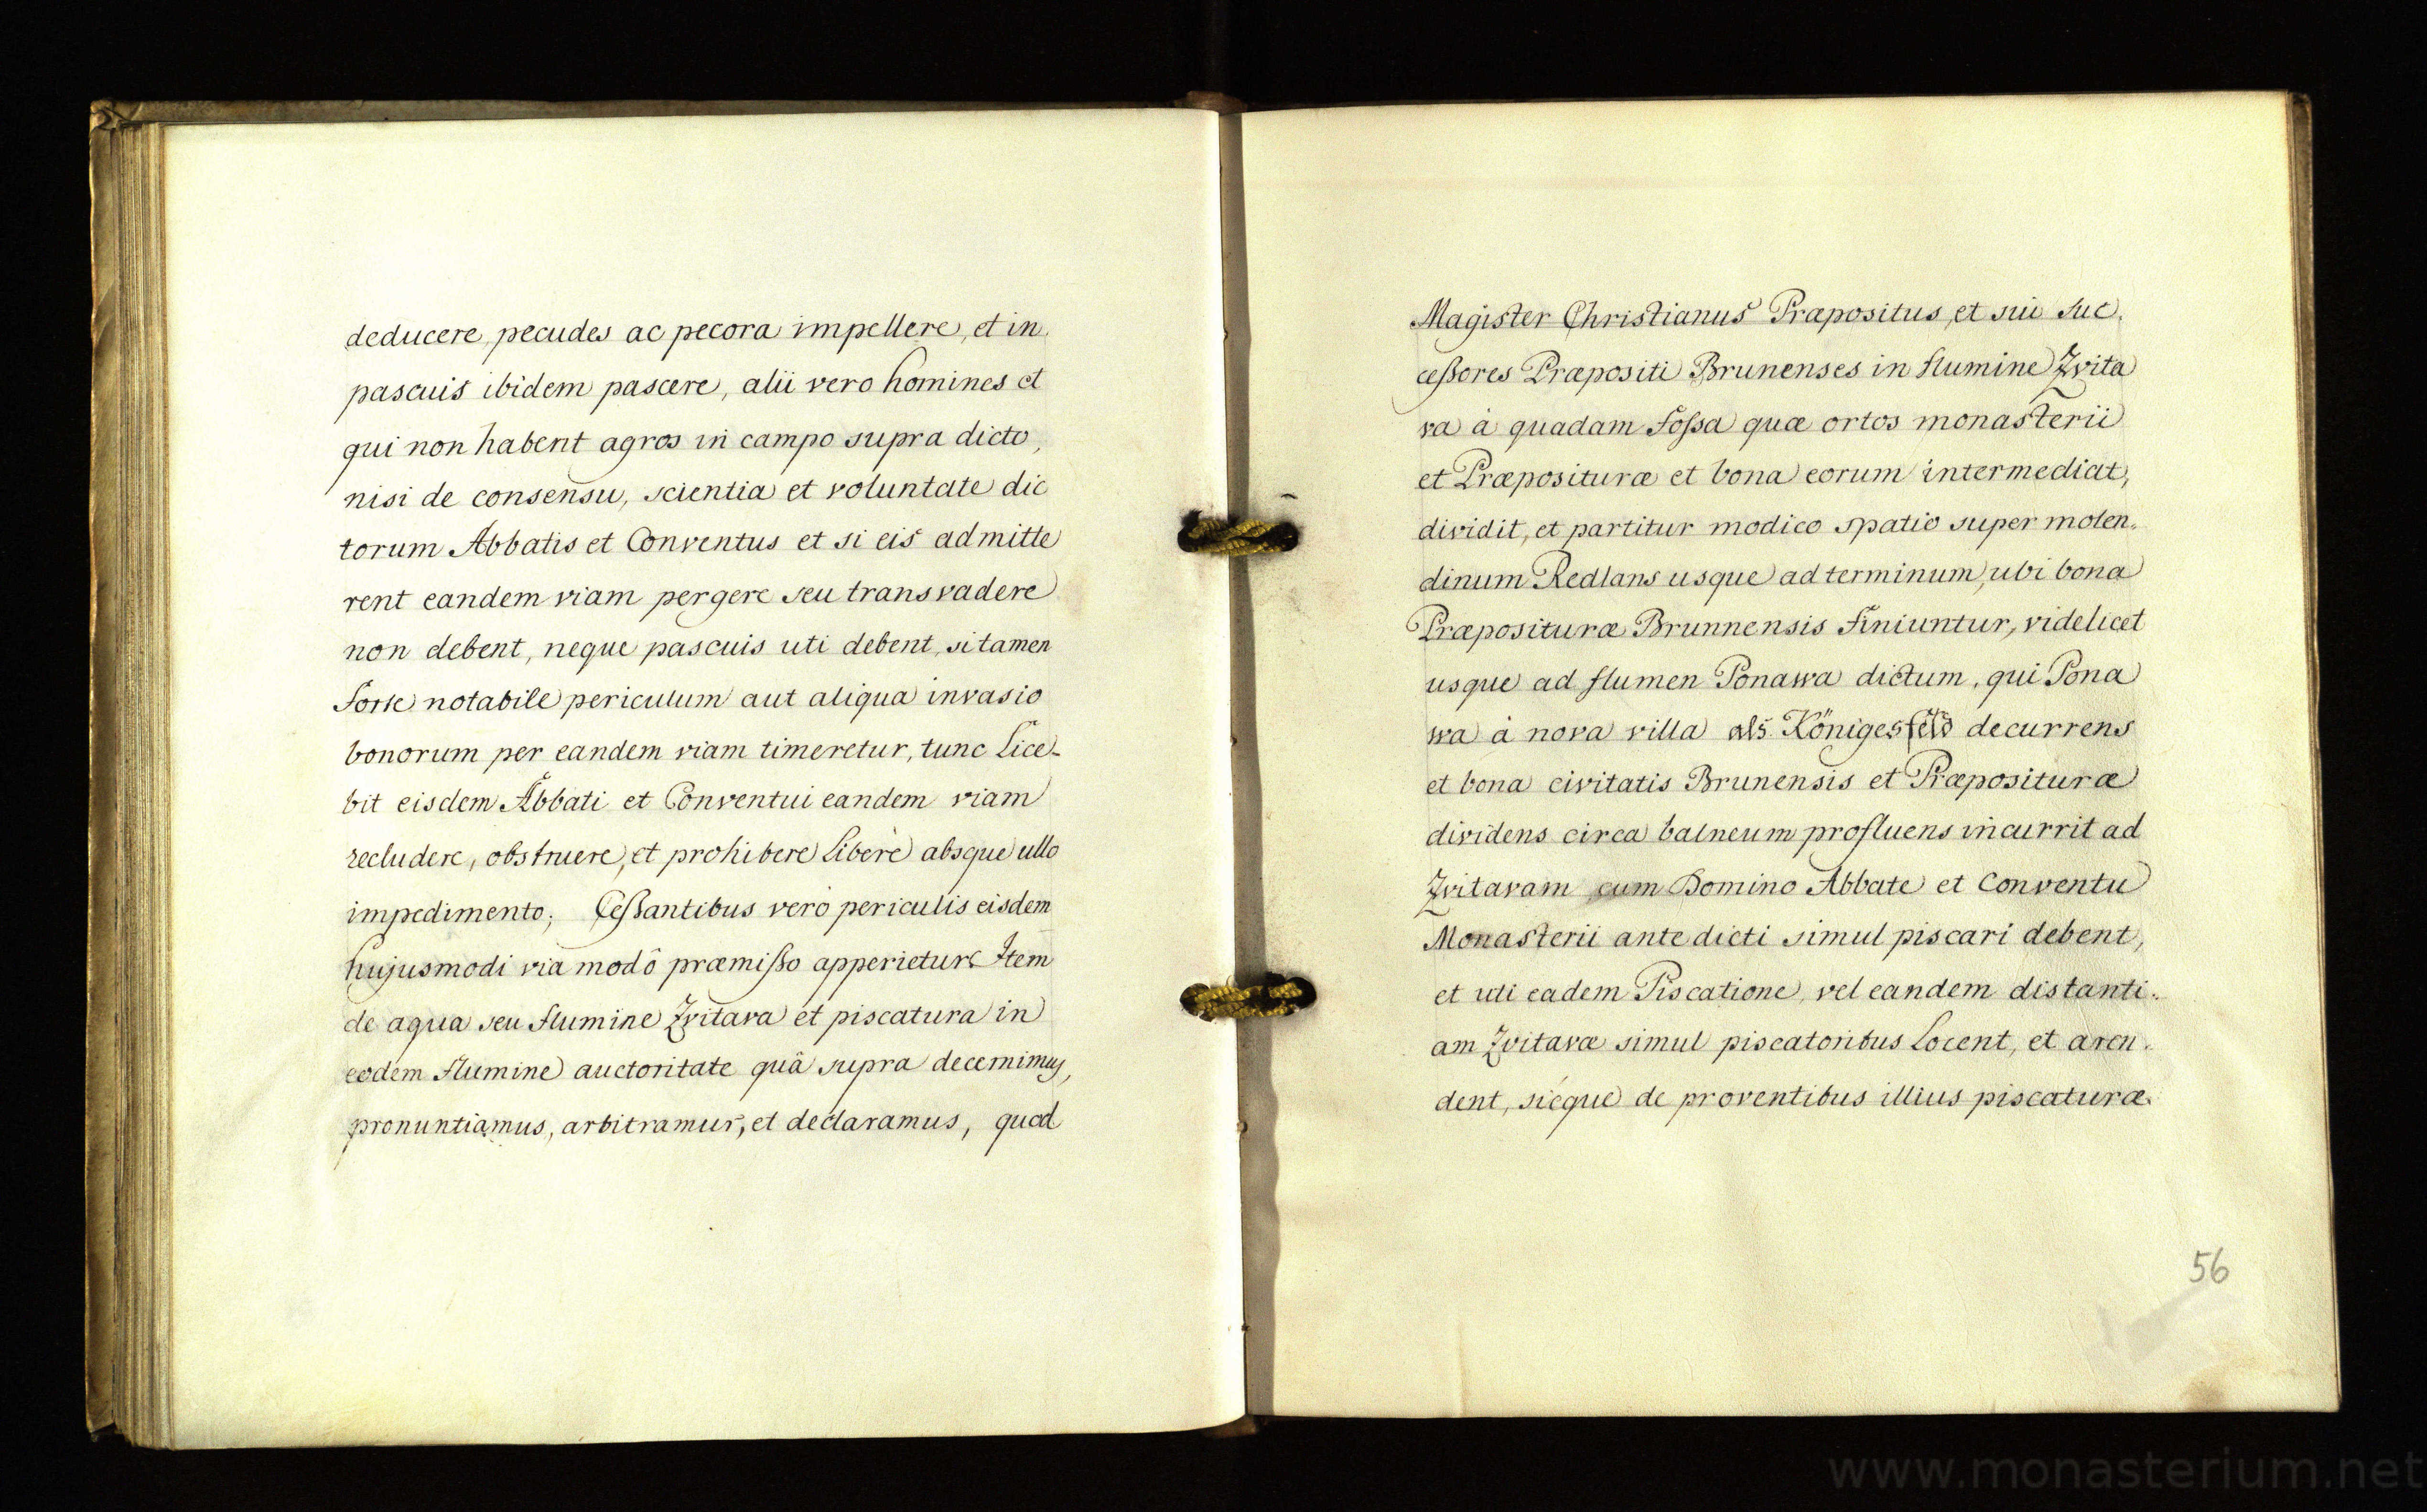 deducere, pecudes ac pecora impellere, et in
pascuis ibidem pascere, alii vero homines et
qui non habent agros in campo supra dicto,
nisi de consensu, scientia et voluntate dic
torum Abbatis et Conventus et si eis admitte
rent eandem viam pergere seu transvadere
non debent, neque pascuis uti debent, si tamen
forte notabile periculum aut aliqua invasio
bonorum per eandem viam timeretur, tunc lice-
bit eisdem Abbati et Conventui eandem viam
recludere, obstruere, et prohibere liberè absque ullo
impedimento; Ceßantibus verò periculis eisdem
hujusmodi via modô præmißo apperietur. Item
de aqua seu flumine Zvitava et piscatura in
eodem flumine auctoritate quâ supra decernimus,
pronuntiamus, arbitramur, et declaramus, quod
Magister Christianus Præpositus, et sui suc.
ceßores Præpositi Brunenses in flumine Zvita
va à quadam foßa quæ ortos monasterii
et Præposituræ et bona eorum intermediat,
dividit, et partitur modico spatio super molen.
dinum Redlans usque ad terminum, ubi bona
Præposituræ Brunnensis finiuntur, videlicet
usque ad flumen Ponawa dictum, qui Pona
wa à nova villa als Königesfeld decurrens
et bona civitatis Brunensis et Præposituræ
dividens circa balneum profluens incurrit ad
Zvitavam cum Domino Abbate et Conventu
Monasterii ante dicti simul piscari debent,
et uti eadem Piscatione, vel eandem distanti.
am Zvitavæ simul piscatoribus locent, et aren.
dent, sicque de proventibus illius piscaturæ.
56
www.monasterium.net